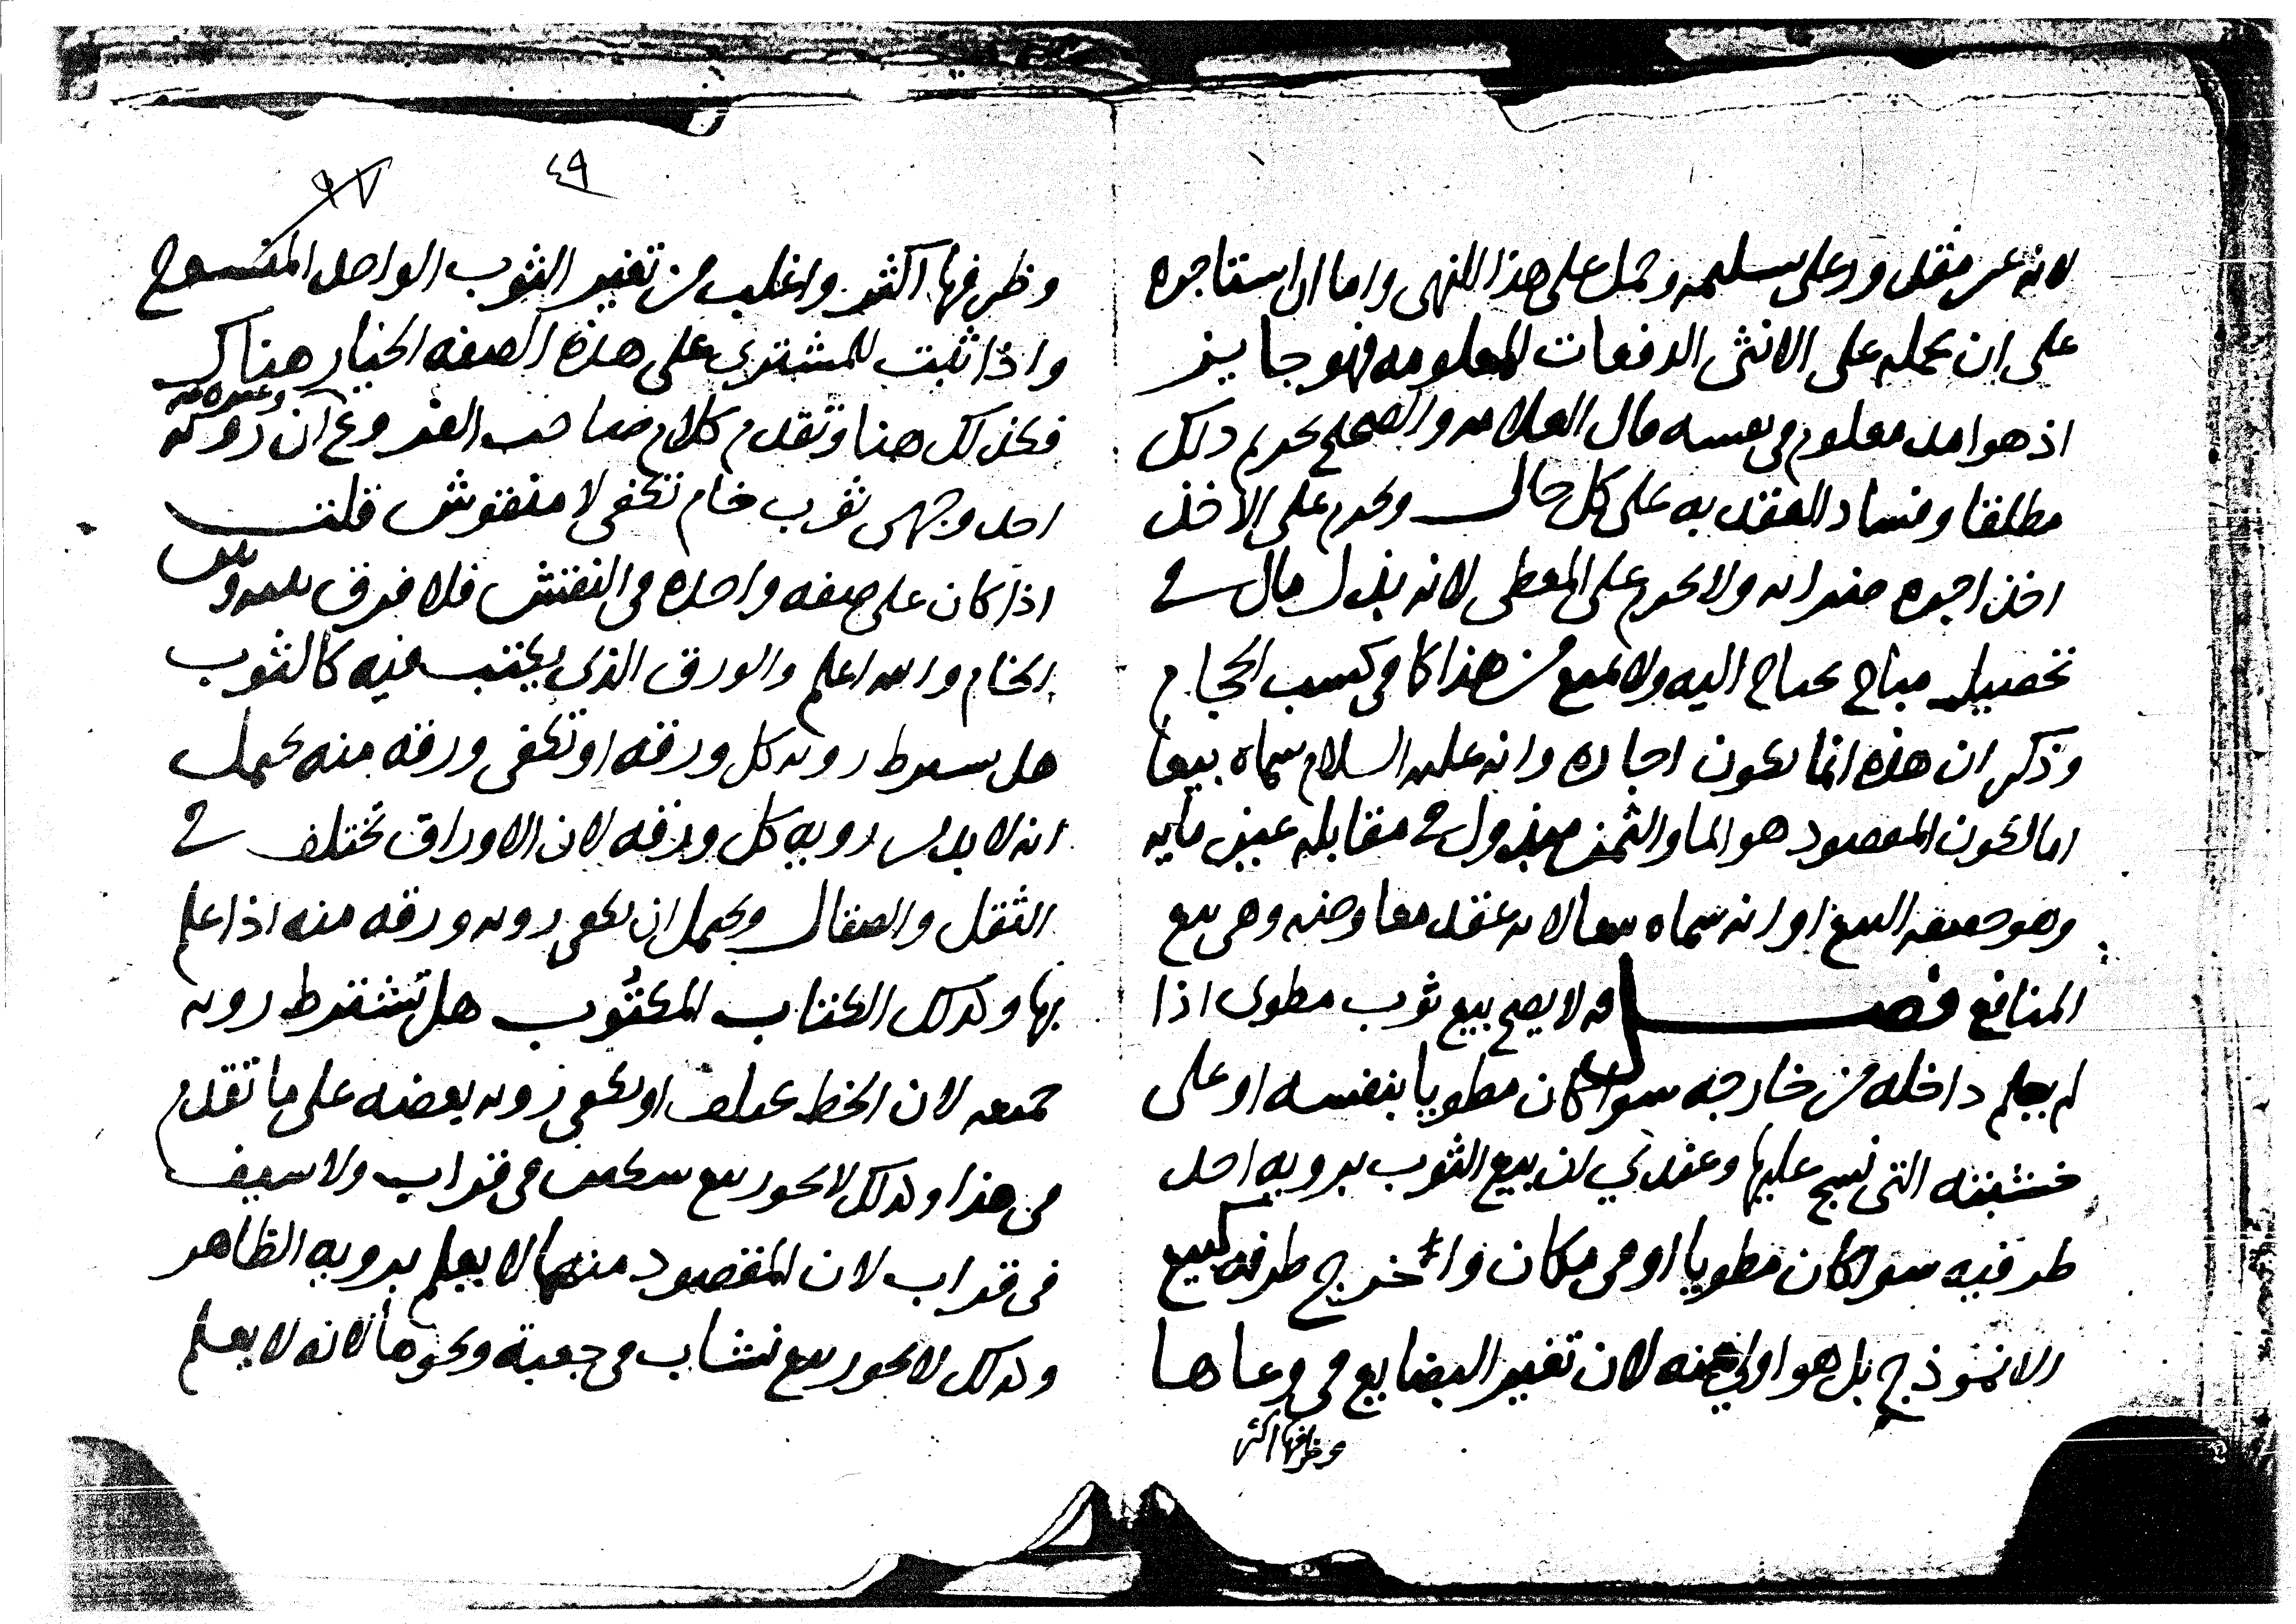 لانه غير مقدور على تسليمه وحمل على هذا النهى واما ان استاجره
على ان يحمله على الانثى الدفعات المعلومه فهو جايز
اذ هو امد معلوم فى نفسه قال العلامه والصحيح تحريم ذلك
مطلقا وفساد العقد به على كل حال ويحرم على الاخذ
اخذ اجره ضرابه ولا يحرم على المعطى لانه بذل مال في
تحصيل مباح يحتاج اليه ولا يمنع من هذا كما فى كسب الحجام
وذكر ان هذه انما تكون اجاره وانه عليه السلام سماه بيعا
اما لكون المقصود هو الما والثمن مبذول في مقابله عين مايه
وهو حقيقه البيع او انه سماه بيعا لانه عقد معاوضه وهى بيع
المنافع فصل ولا يصح بيع ثوب مطوى اذا
لم يعلم داخله من خارجه سوا كان مطويا بنفسه او على
خشبته التى نسج عليها وعندي ان بيع الثوب برويه احد
طرفيه سوا كان مطويا او فى مكان واخرج طرفه كبيع
الانموذج بل هو اولى منه لان تغيير البضايع فى وعاها
وظرفها اكثر
٤٩
وظرفها اكثر واغلب من تغير الثوب الواحد المنسوج
واذا ثبت للمشترى على هذه الصفه الخيار هناك
فكذلك هنا وتقدم كلام صاحب الفروع ان رويه
وغيره من
احد وجهى ثوب خام تكفى لا منقوش قلت
اذا كان على صفه واحده فى النقش فلا فرق بينه وبين
الخام والله اعلم والورق الذى يكتب فيه كالثوب
هل يشترط رويه كل ورقه او تكفى ورقه منه يحتمل
انه لا بد من رويه كل ورقه لان الاوراق تختلف في
الثقل والصقال ويحتمل ان يكفى رويه ورقه منه اذا علم
بها وكذلك الكتاب المكتوب هل تشترط رويه
جميعه لان الخط يختلف او يكفى رويه بعضه على ما تقدم
فى هذا وكذلك لا يجوز بيع سكين فى قراب ولا سيف
فى قراب لان المقصود منهما لا يعلم برويه الظاهر
وكذلك لا يجوز بيع نشاب فى جعبة ونحوها لانه لا يعلم